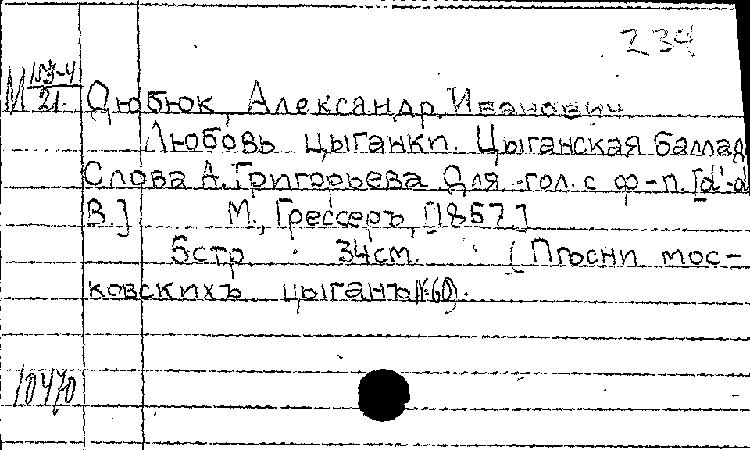 234
М 153-4
21.
Дюбюк, Александр Иванович
Любовь цыганки. Цыганская баллад
Слова А. Григорьева Для гол. с ф-п. [d'-d
В.] М., Грессеръ, [1857.]
5 стр. 34 см. (Пѣсни мос-
ковскихъ цыганъ №60).
10470